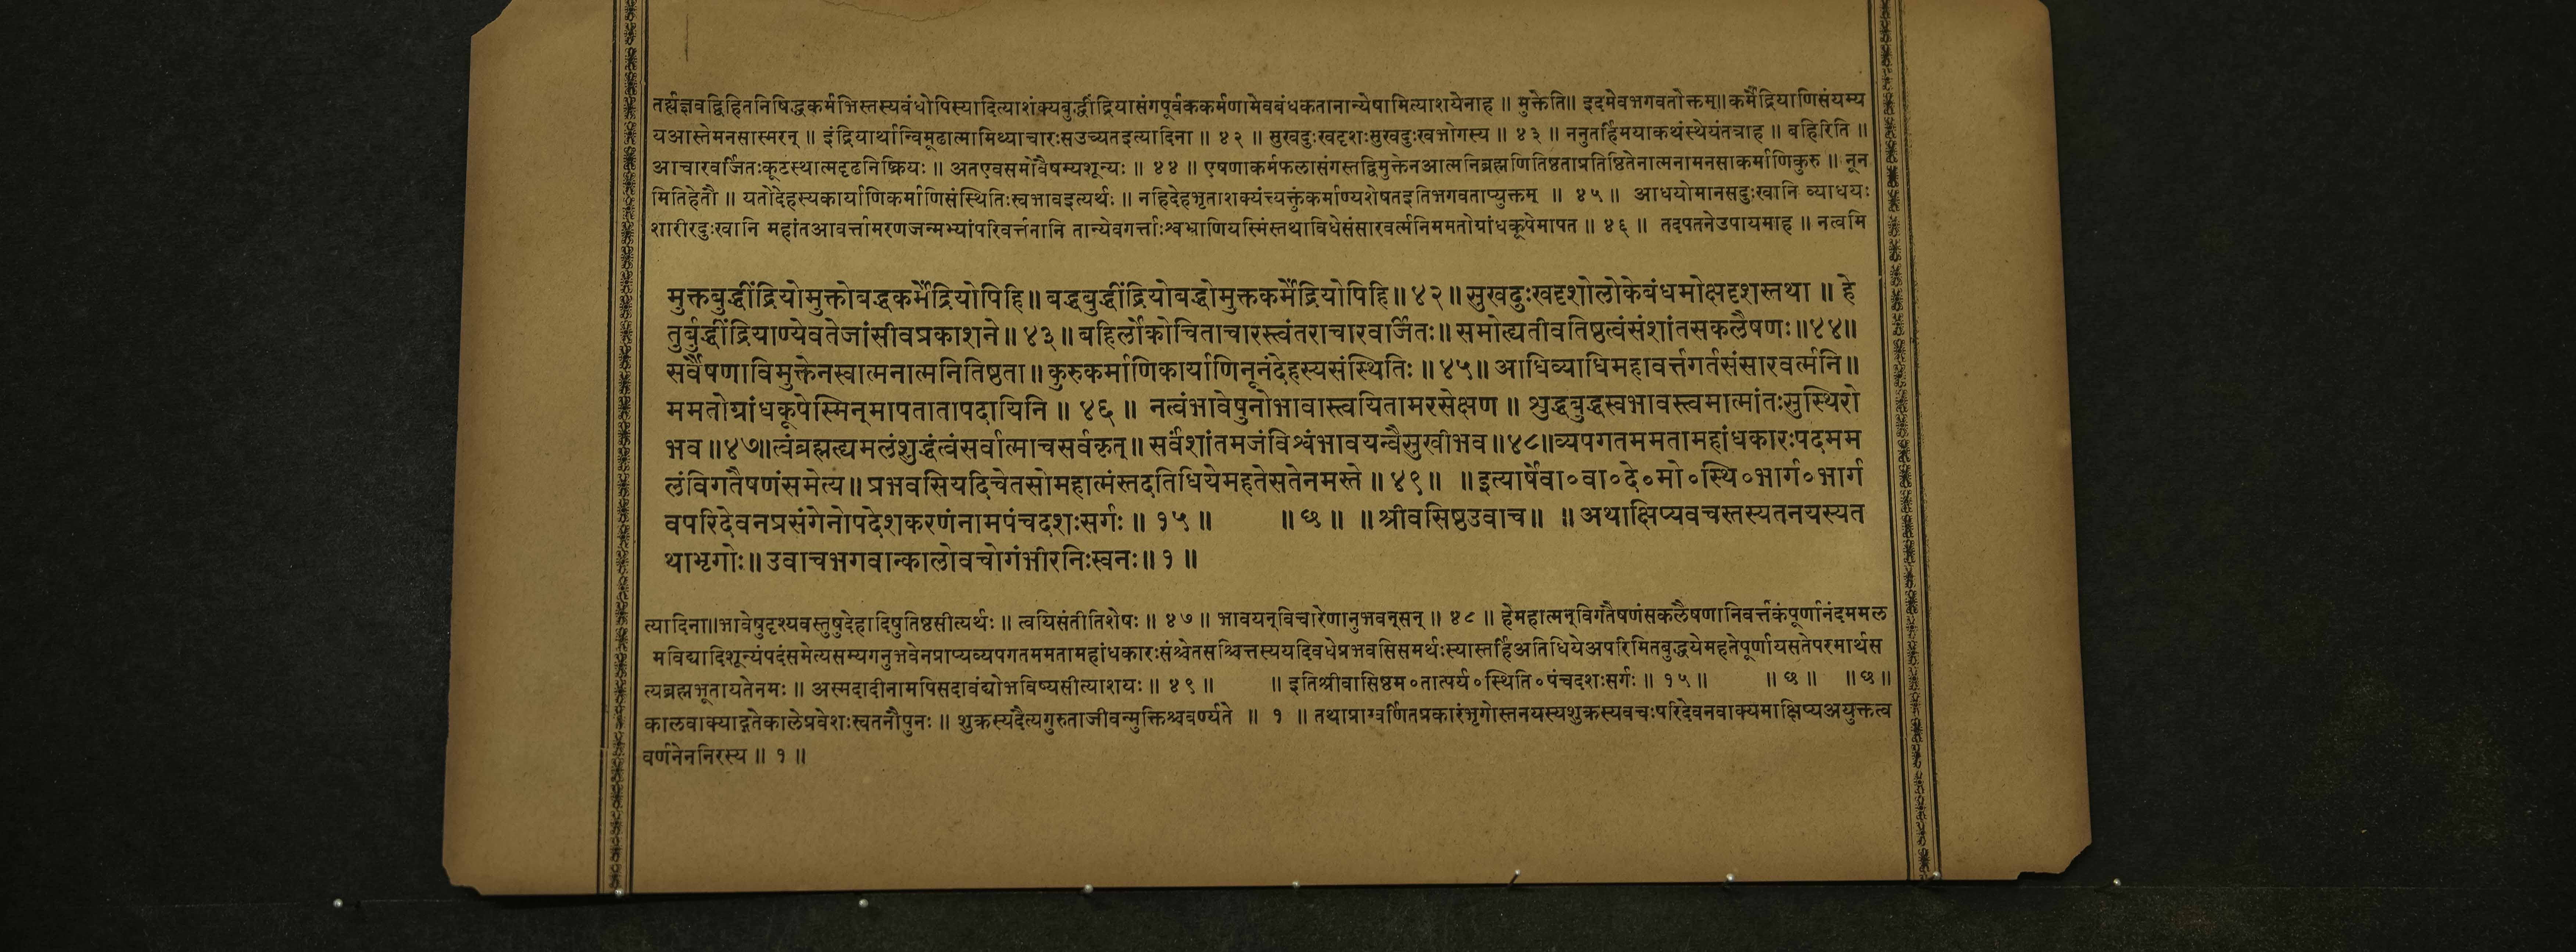 तर्ह्यज्ञवद्विहितनिषिद्धकर्मभिस्तस्यबंधोपिस्यादित्याशंक्यबुद्धींद्रियासंगपूर्वककर्मणामेवबंधकतानान्येषामित्याशयेनाह ॥ मुक्तेति॥ इदमेवभगवतोक्तम्॥ कर्मेंद्रियाणिसंयम्य
यआस्तेमनसास्मरन् ॥ इंद्रियार्थान्विमूढात्मामिथ्याचारःसउच्यतइत्यादिना ॥ ४२ ॥ सुखदुःखदृशःसुखदुःखभोगस्य ॥ ४३ ॥ ननुतर्हिमयाकथंस्थेयंतत्राह ॥ बहिरिति ॥
आचारवर्जितःकूटस्थात्मदृढनिष्क्रियः ॥ अतएवसमोवैषम्यशून्यः ॥ ४४ ॥ एषणाकर्मफलासंगस्तद्विमुक्तेनआत्मनिब्रह्मणितिष्ठताप्रतिष्ठितेनात्मनामनसाकर्माणिकुरु ॥ नून
मितिहेतौ ॥ यतोदेहस्यकार्याणिकर्माणिसंस्थितिःस्वभावइत्यर्थः ॥ नहिदेहभृताशक्यंत्यक्तुंकर्माण्यशेषतइतिभगवताप्युक्तम् ॥ ४५ ॥ आधयोमानसदुःखानि व्याधयः
शारीरदुःखानि महांतआवर्त्तामरणजन्मभ्यांपरिवर्त्तनानि तान्येवगर्त्ताःश्वभ्राणियस्मिंस्तथाविधेसंसारवर्त्मनिममतोग्रांधकूपेमापत ॥ ४६ ॥ तदपतनेउपायमाह ॥ नत्वमि
मुक्तबुद्धींद्रियोमुक्तोबद्धकर्मेंद्रियोपिहि॥ बद्धबुद्धींद्रियोबद्धोमुक्तकर्मेंद्रियोपिहि॥ ४२॥ सुखदुःखदृशोलोकेबंधमोक्षदृशस्तथा ॥ हे
तुर्बुद्धींद्रियाण्येवतेजांसीवप्रकाशने॥ ४३॥ बहिर्लोकोचिताचारस्त्वंतराचारवर्जितः॥ समोह्यतीवतिष्ठत्वंसंशांतसकलैषणः॥४४॥
सर्वैषणाविमुक्तेनस्वात्मनात्मनितिष्ठता॥ कुरुकर्माणिकार्याणिनूनंदेहस्यसंस्थितिः ॥४५॥ आधिव्याधिमहावर्त्तगर्तसंसारवर्त्मनि॥
ममतोग्रांधकूपेस्मिन्मापतातापदायिनि ॥ ४६ ॥ नत्वंभावेषुनोभावास्त्वयितामरसेक्षण ॥ शुद्धबुद्धस्वभावस्त्वमात्मांतःसुस्थिरो
भव॥४७॥त्वंब्रह्मह्यमलंशुद्धंत्वंसर्वात्माचसर्वकृत्॥ सर्वंशांतमजंविश्वंभावयन्वैसुखीभव॥४८॥व्यपगतममतामहांधकारःपदमम
लंविगतैषणंसमेत्य॥ प्रभवसियदिचेतसोमहात्मंस्तदतिधियेमहतेसतेनमस्ते ॥ ४९॥ ॥ इत्यार्षेवा॰वा॰दे॰मो॰स्थि॰भार्ग॰भार्ग
वपरिदेवनप्रसंगेनोपदेशकरणंनामपंचदशःसर्गः ॥ १५॥ ॥ छ ॥ ॥ श्रीवसिष्ठउवाच॥ ॥ अथाक्षिप्यवचस्तस्यतनयस्यत
थाभृगोः॥ उवाचभगवान्कालोवचोगंभीरनिःस्वनः॥ १ ॥
त्यादिना॥भावेषुदृश्यवस्तुषुदेहादिषुतिष्ठसीत्यर्थः ॥ त्वयिसंतीतिशेषः ॥ ४७ ॥ भावयन्विचारेणानुभवन्सन् ॥ ४८ ॥ हेमहात्मन्विगतैषणंसकलैषणानिवर्त्तकंपूर्णानंदममल
मविद्यादिशून्यंपदंसमेत्यसम्यगनुभवेनप्राप्यव्यपगतममतामहांधकारःसंश्चेतसश्चित्तस्ययदिवधेप्रभवसिसमर्थःस्यास्तर्हिअतिधियेअपरिमितबुद्धयेमहतेपूर्णायसतेपरमार्थस
त्यब्रह्मभूतायतेनमः ॥ अस्मदादीनामपिसदावंद्योभविष्यसीत्याशयः ॥ ४९ ॥ ॥ इतिश्रीवासिष्ठम॰तात्पर्य॰स्थिति॰पंचदशःसर्गः ॥ १५ ॥ ॥ छ ॥ ॥ छ ॥
कालवाक्याद्गतेकालेप्रवेशःस्वतनौपुनः ॥ शुक्रस्यदैत्यगुरुताजीवन्मुक्तिश्चवर्ण्यते ॥ १ ॥ तथाप्राग्वर्णितप्रकारंभृगोस्तनयस्यशुक्रस्यवचःपरिदेवनवाक्यमाक्षिप्यअयुक्तत्व
वर्णनेननिरस्य ॥ १ ॥